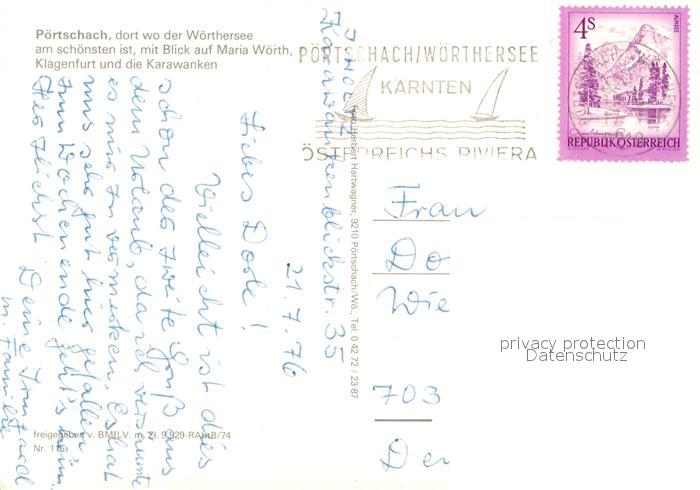 Pörtschach, dort wo der Wörthersee
am schönsten ist, mit Blick auf Maria Wörth,
Klagenfurt und die Karawanken
PÖRTSCHACH/WÖRTHERSEE
KÄRNTEN
ÖSTERREICHS RIVIERA
4S
ALMSEE
REPUBLIK ÖSTERREICH
Karawankenblickstr. 35
21.7.76
Liebes Dorle!
Vielleicht ist dies
schon der zweite Gruß aus
dem Urlaub, da ich versäumte
es mir zu vermerken. Es hat
uns sehr gut hier gefallen
zum Wochenende geht's heim
Herzlichst Deine Irmtraud
m. Familie
Herbert Hartwagner, 9210 Pörtschach/Wö., Tel. 0 42 72 / 23 87
Frau
Do
Wie
703
Der
privacy protection
Datenschutz
freigegeben v. BMfLV. m. Zl. 9.929-RAbtB/74